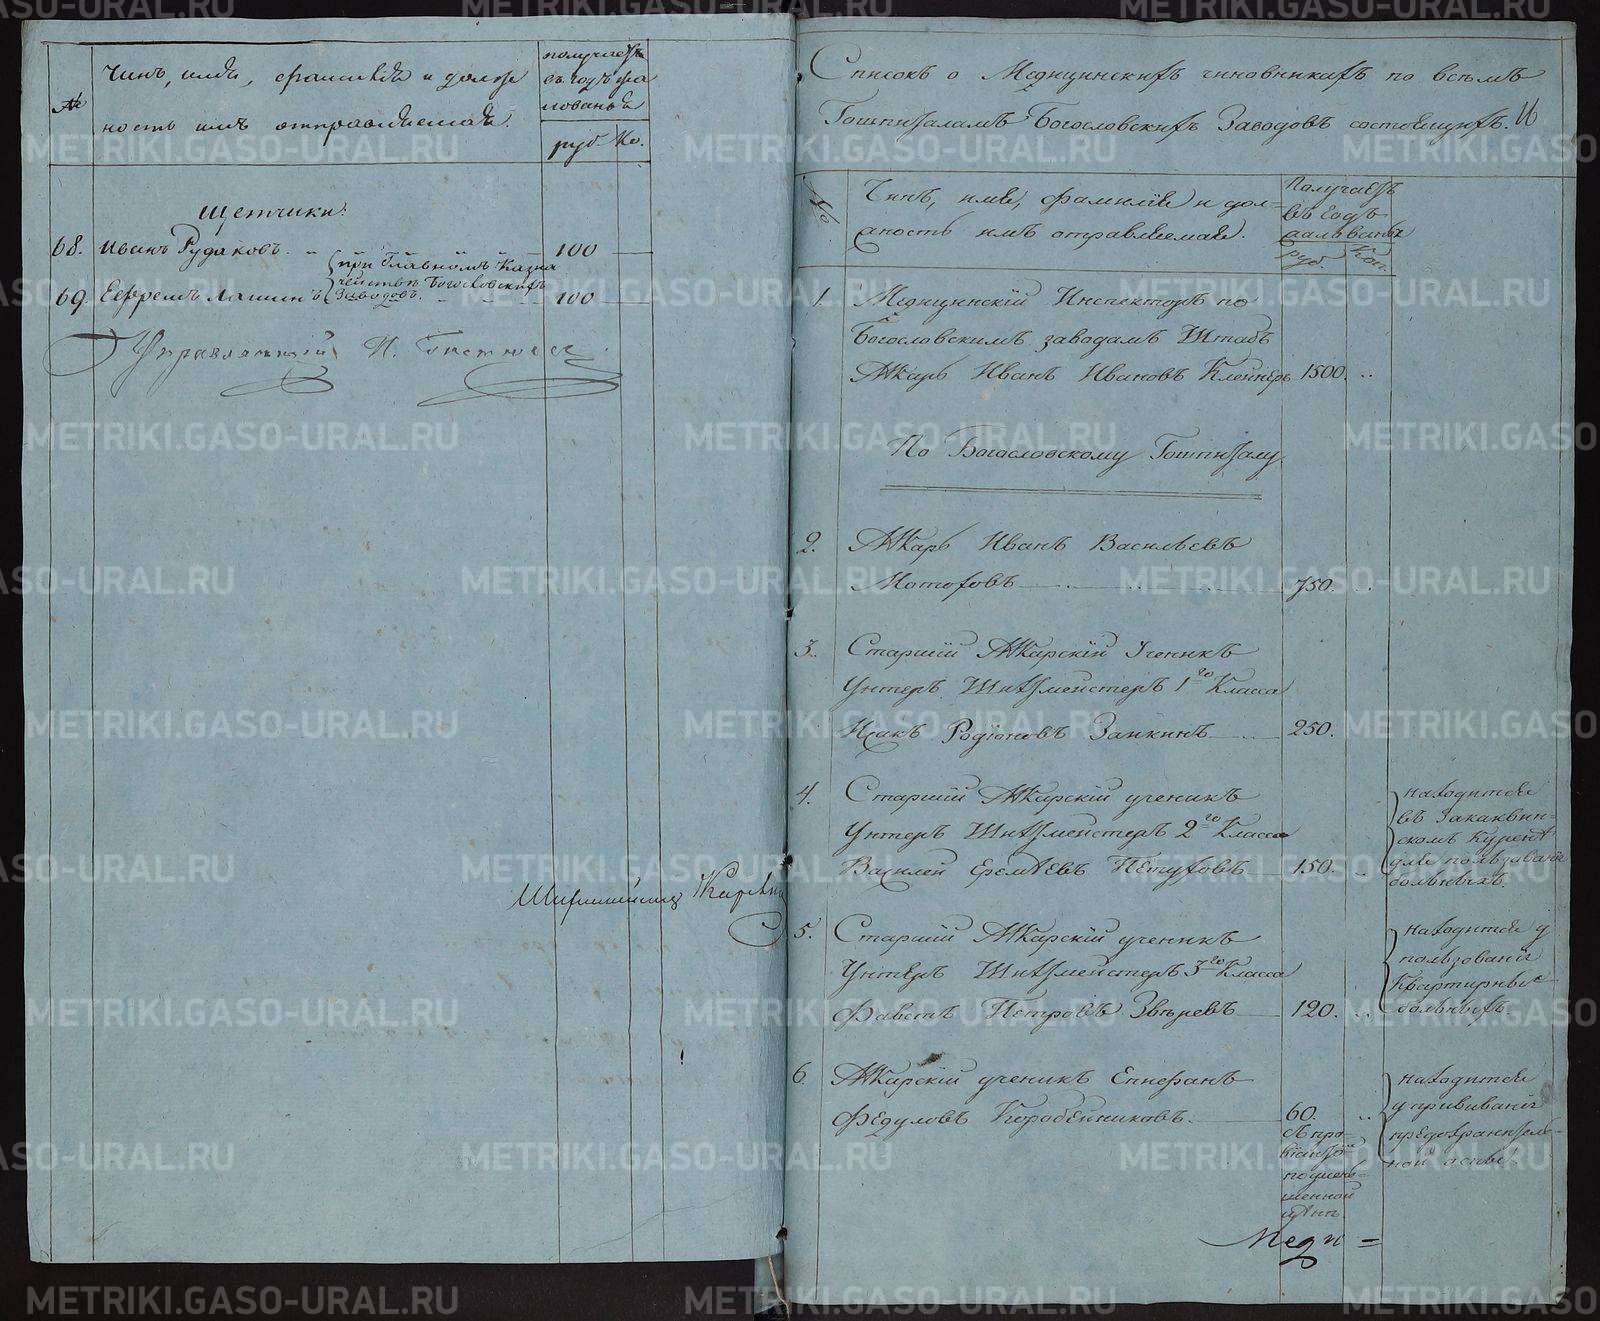 №
Чинъ, имя, фамилія и долж
ность имъ отправляемая.
получаетъ
въ годъ жа
лованья
руб. Ко.
Щетчики:
68. Иванъ Рудаковъ. " 100
69. Ефремъ Лапинъ 100
при Главномъ Казна
чействѣ Богословскихъ
Заводовъ.
Управляющій П.
Шихтмейстер
Списокъ о Медицинскихъ чиновникахъ по всѣмъ
Гошпиталамъ Богословскихъ Заводовъ состоящихъ.
№
Чинъ, имя, фамилія и дол=
жность имъ отправляемая.
Получаетъ
въ годъ
жалованья
руб. Коп.
1. Медицинскій Инспекторъ по
Богословскимъ заводамъ Штабъ
Лѣкарь Иванъ Ивановъ Клейнеръ 1500. ..
По Богословскому Гошпиталу.
2. Лѣкарь Иванъ Васильевъ
Мотоховъ 750. ..
3. Старшій Лѣкарскій Ученикъ
Унтеръ Шихтмейстеръ 1го Класса
Исакъ Родіоновъ Заикинъ 250.
4. Старшій Лѣкарскій ученикъ
Унтеръ Шихтмейстеръ 2го Класса
Василей Еремѣевъ Пѣтуховъ 150. ..
находится
въ Какавин=
скомъ Куренѣ
для пользованія
больныхъ.
5. Старшій Лѣкарскій ученикъ
Унтеръ Шихтмейстеръ 3го Класса
Фавстъ Петровъ Звѣревъ 120. ..
находится у
пользованія
Квартирныхъ
больныхъ.
6. Лѣкарскій ученикъ Епифанъ
Федуловъ Коробейниковъ. 60. ..
съ про=
віантомъ
по умень=
шенной
цѣнѣ.
находится
у прививанія
предохранитель=
ной оспы.
Меди=